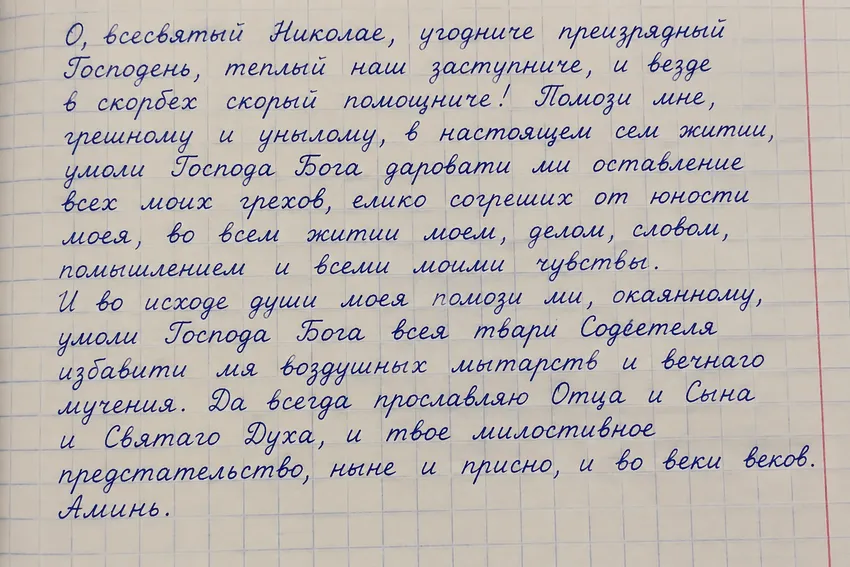 О, всесвятый Николае, угодниче преизрядный
Господень, теплый наш заступниче, и везде
в скорбех скорый помощниче! Помози мне,
грешному и унылому, в настоящем сем житии,
умоли Господа Бога даровати ми оставление
всех моих грехов, елико согреших от юности
моея, во всем житии моем, делом, словом,
помышлением и всеми моими чувствы.
И во исходе души моея помози ми, окаянному,
умоли Господа Бога всея твари Содеетеля
избавити мя воздушных мытарств и вечнаго
мучения. Да всегда прославляю Отца и Сына
и Святаго Духа, и твое милостивное
предстательство, ныне и присно, и во веки веков.
Аминь.